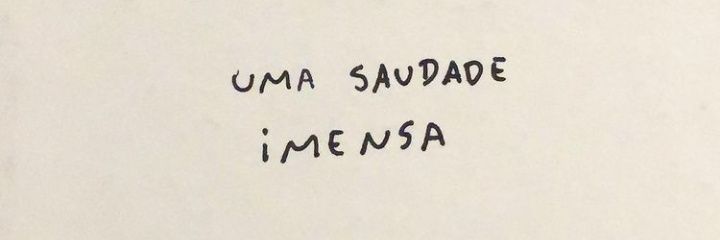 UMA SAUDADE
iMENSA